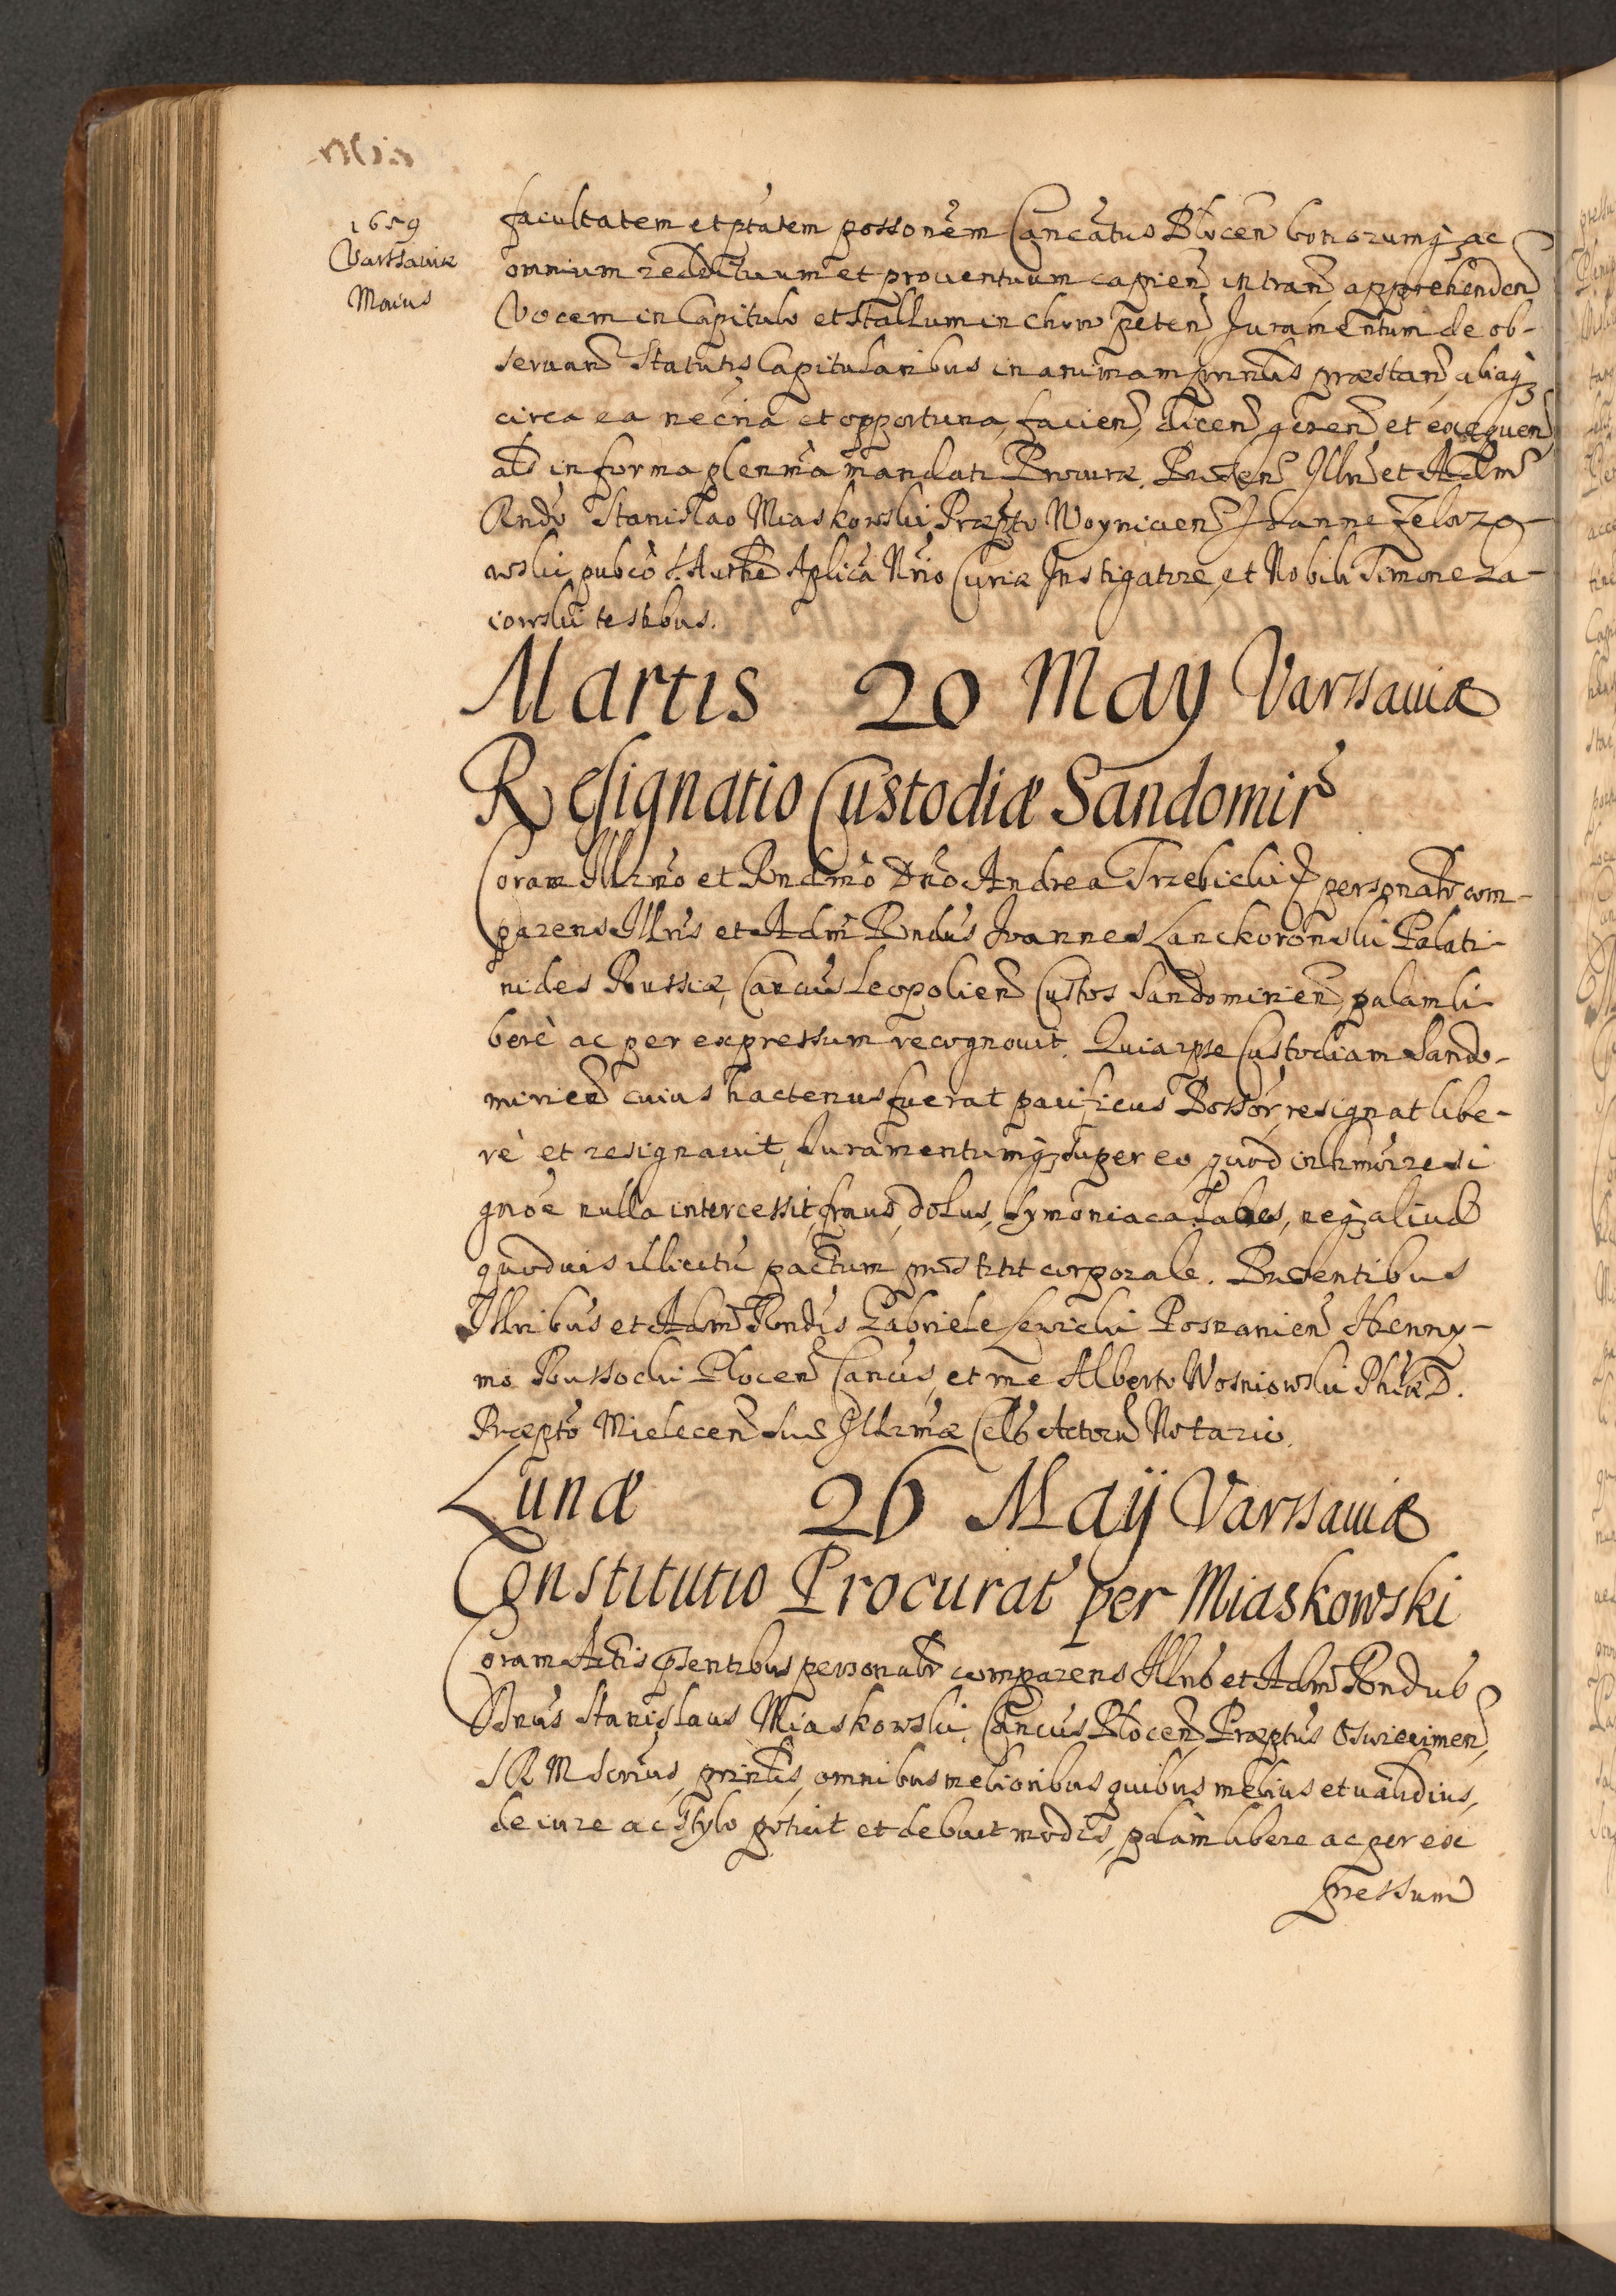 1659
Varssauiæ
Maius
facultatem et ptatem possonem Cancatus Plocen bonorumq ac
omnium reddituum et prouentuum capien intran apprehenden
Vocem in Capitulo et stallum in choro peten Juramentum de ob-
seruan Statutis Capitularibus in animam prinlis præstan aliaq
circa ea necria et opportuna facien, dicen, geren et exequen
als in forma plenria mandati Procuræ. Præsen Illri et Adm
Rndo Stanislao Miaskowski Præpto Woynicien Joanne Zelazo-
wski pubco S. Authe Aplica Nrio Curiæ Instigatore, et Nobili Simone Za-
iowski testibus.
Martis 20 May Varssauiæ
Resignatio Custodiæ Sandomir
Coram Illrmo et Rndmo Dno Andrea Trzebicki personalr com-
parens Illris et Adm Rndus Joannes Lanckoronski Palati-
nides Russiæ, Cancus Leopolien Custos Sandomirien palam li-
berè ac per expressum recognouit. Quia ipse Custodiam Sando-
mirien cuius hactenus fuerat pacificus Possor, resignat libe-
rè et resignauit, Juramentumq super eo, quod in hmoi resi
gnoe nulla intercessit fraus, dolus, symoniaca labes, neq aliud
quoduis illicitu pactum præstitit corporale. Præsentibus
Illribus et Adm Rndis Gabriele Posnanien Hierony-
mo Russocki Plocen Cancis, et me Alberto Wosniowski
Præpto Mielecen Suæ Illrmæ Cels Actoru Notario.
Lunæ 26 Maÿ Varssauiæ
Constitutio Procurat per Miaskowski
Coram Actis psentibus personalr comparens Illris et Adm Rndus
Dnus Stanislaus Miaskowski Cancus Plocen Præptus Oswiecimen,
S R M Scrius, prinlis, omnibus melioribus quibus melius et ualidius,
de iure ac stylo potuit et debuit modis, palàm libere ac per ex
pressum